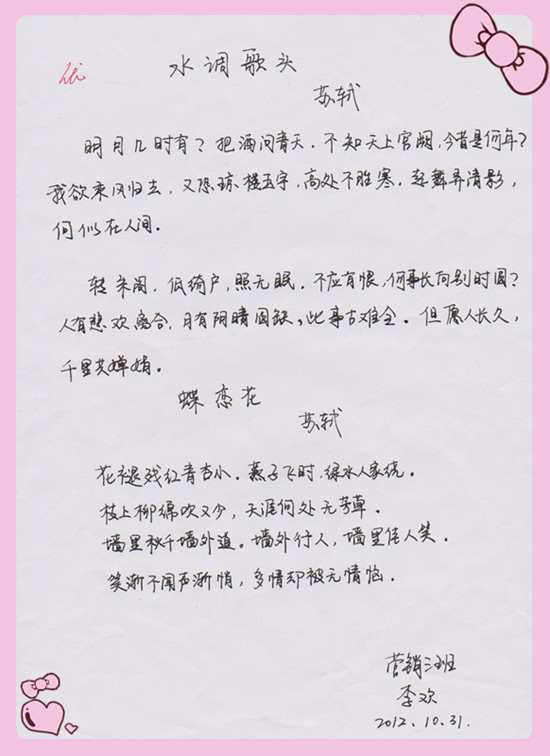 水调歌头
苏轼
明月几时有？把酒问青天．不知天上宫阙，今昔是何年？
我欲乘风归去，又恐琼楼玉宇，高处不胜寒．起舞弄清影，
何似在人间。
转朱阁，低绮户，照无眠．不应有恨，何事长向别时圆？
人有悲欢离合，月有阴晴圆缺，此事古难全．但愿人长久，
千里共婵娟。
蝶恋花
苏轼
花褪残红青杏小．燕子飞时，绿水人家绕．
枝上柳绵吹又少，天涯何处无芳草．
墙里秋千墙外道。墙外行人，墙里佳人笑．
笑渐不闻声渐悄，多情却被无情恼．
营销班
李欢
2012.10.31.